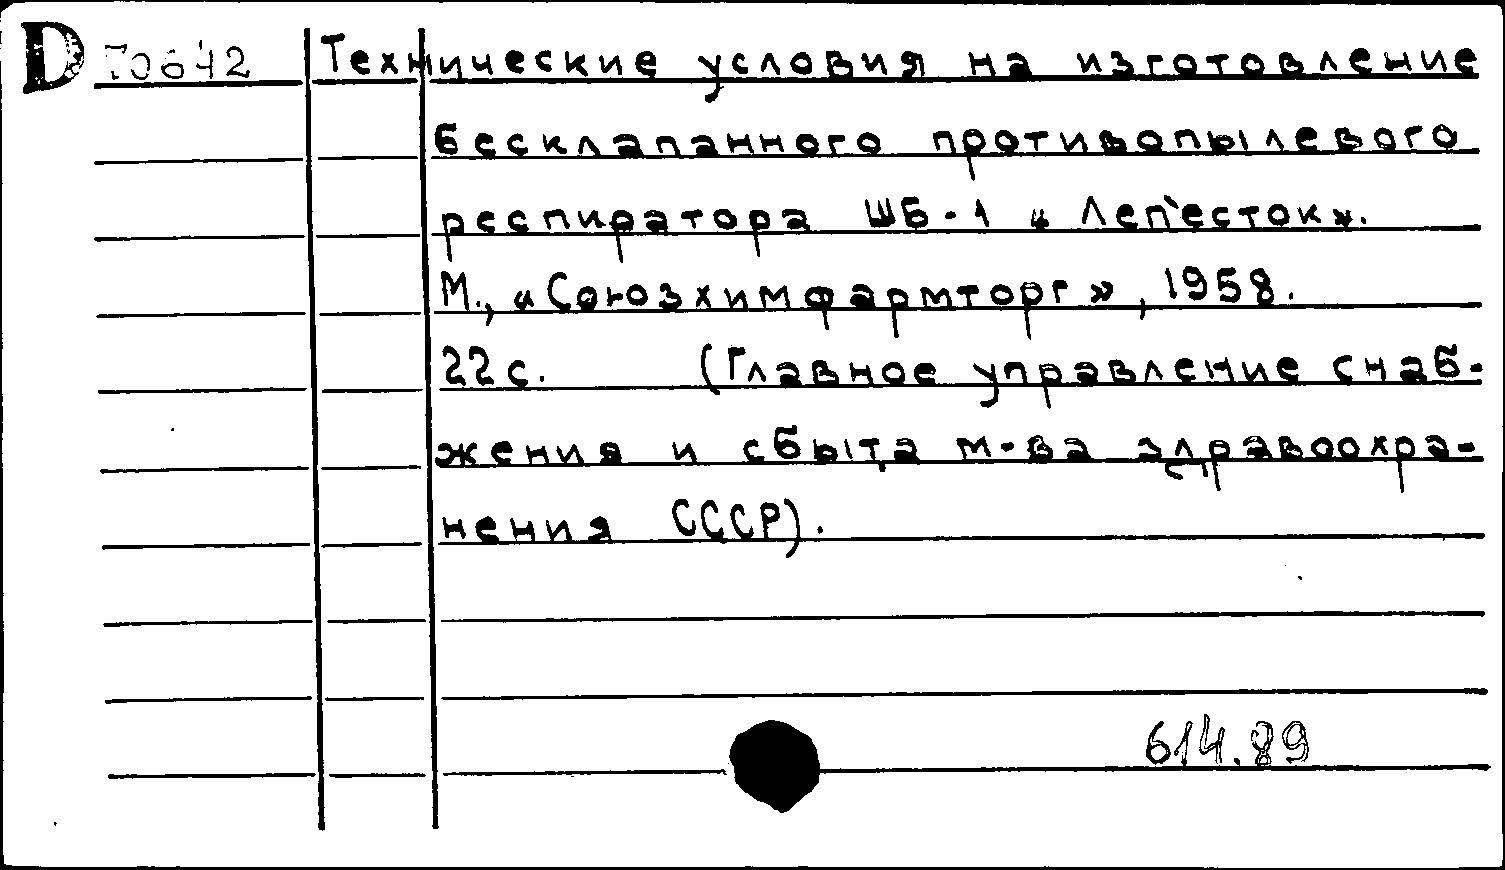 D 70642 Технические условия на изготовление
бесклапанного противопылевого
респиратора ШБ-1 «Лепесток».
М., «Союзхимфармторг», 1958.
22 с. (Главное управление снаб-
жения и сбыта м-ва здравоохра-
нения СССР).
614.89